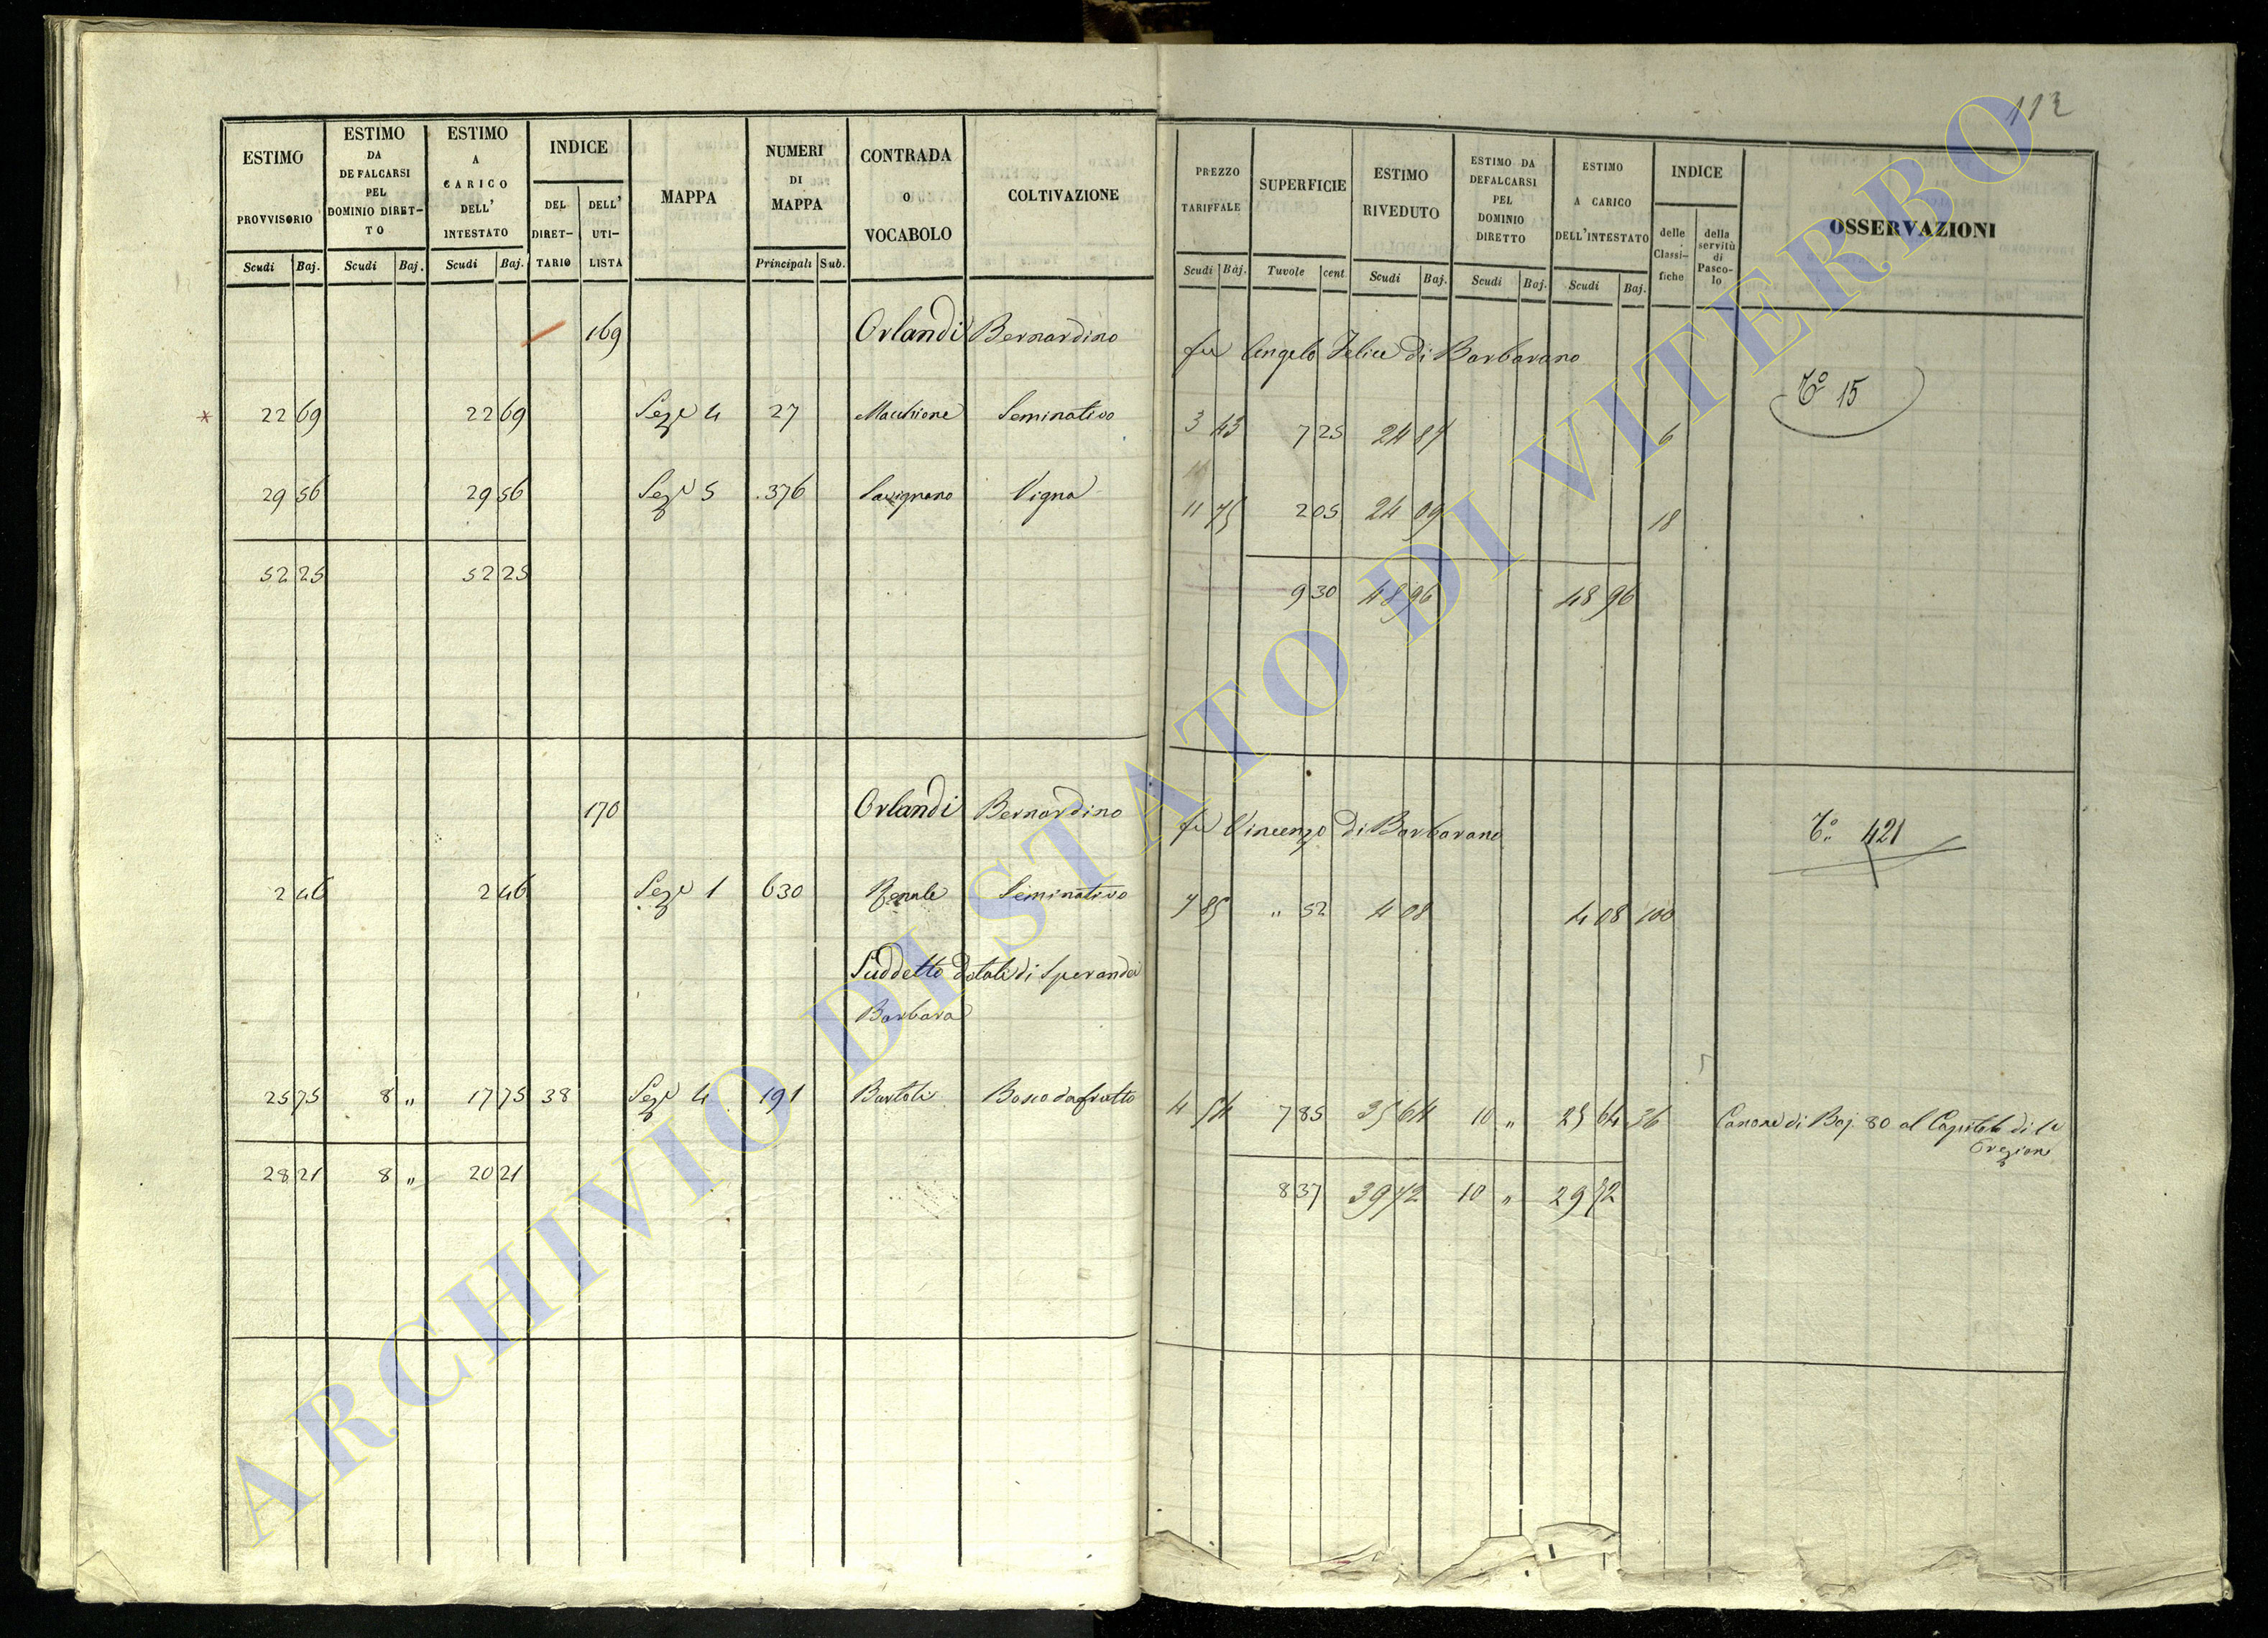 112
ESTIMO PROVVISORIO
ESTIMO DA DEFALCARSI PEL DOMINIO DIRET-TO
ESTIMO A CARICO DELL' INTESTATO
INDICE
DEL DIRET-TARIO
DELL' UTI-LISTA
MAPPA
NUMERI DI MAPPA
CONTRADA O VOCABOLO
COLTIVAZIONE
PREZZO TARIFFALE
SUPERFICIE
ESTIMO RIVEDUTO
ESTIMO DA DEFALCARSI PEL DOMINIO DIRETTO
ESTIMO A CARICO DELL'INTESTATO
INDICE
delle Classi-fiche
della servitù di Pasco-lo
OSSERVAZIONI
Scudi Baj. Scudi Baj. Scudi Baj. Principali Sub. Scudi Baj. Tavole cent. Scudi Baj. Scudi Baj. Scudi Baj.
169 Orlandi Bernardino fu Angelo Felice di Barbarano
15
22 69 22 69 Seze 4 27 Macchione Seminativo 3 43 7 25 24 87 6
29 56 29 56 Seze 5 376 Savignano Vigna 11 75 2 05 24 09 18
52 25 52 25 9 30 48 96 48 96
170 Orlandi Bernardino fu Vincenzo di Barbarano
421
2 46 2 46 Seze 1 630 Seminativo 7 85 " 52 4 08 4 08 100
Suddetto dotali di Sperandei
Barbara
25 75 8 " 17 75 38 Seze 4 191 Bartoli Bosco da frutto 4 54 7 85 35 64 10 " 25 64 36 Canone di Baj. 80 al Capitolo di
28 21 8 " 20 21 8 37 39 72 10 " 29 72
ARCHIVIO DI STATO DI VITERBO